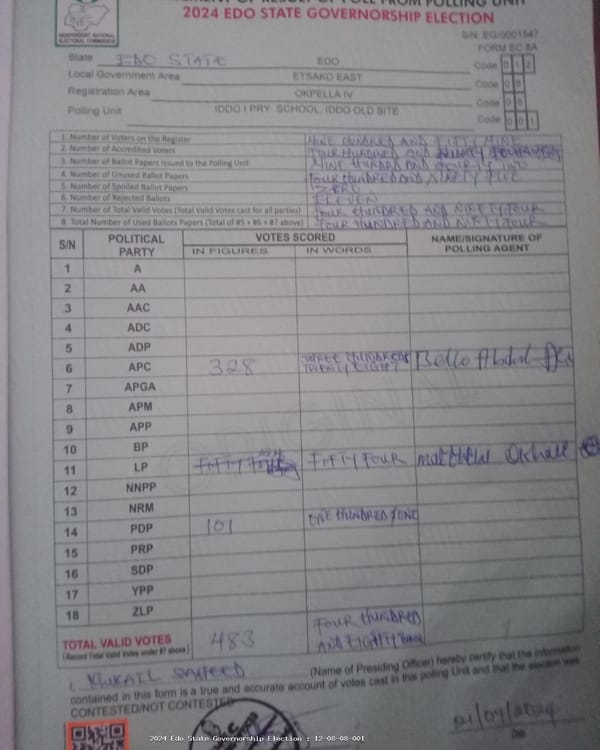 2024 EDO STATE GOVERNORSHIP ELECTION
INDEPENDENT NATIONAL
ELECTORAL COMMISSION
S/N: EG/0001547
FORM EC 8A
State EDO STATE EDO Code 0 1 2
Local Government Area ETSAKO EAST Code 0 8
Registration Area OKPELLA IV Code 0 8
Polling Unit IDDO I PRY. SCHOOL, IDDO OLD SITE Code 0 0 1
1. Number of Voters on the Register NINE HUNDRED AND FIFTY NINE
2. Number of Accredited Voters FOUR HUNDRED AND
3. Number of Ballot Papers Issued to the Polling Unit NINE HUNDRED AND
4. Number of Unused Ballot Papers FOUR HUNDRED AND NINETY FIVE
5. Number of Spoiled Ballot Papers ZERO
6. Number of Rejected Ballots ELEVEN
7. Number of Total Valid Votes (Total Valid Votes cast for all parties) FOUR HUNDRED AND NINETY FOUR
8. Total Number of Used Ballots Papers (Total of #5 + #6 + #7 above) FOUR HUNDRED AND NINETY FOUR
S/N POLITICAL PARTY VOTES SCORED NAME/SIGNATURE OF POLLING AGENT
IN FIGURES IN WORDS
1 A
2 AA
3 AAC
4 ADC
5 ADP
6 APC 328 THREE HUNDRED TWENTY EIGHT Bello Abdul
7 APGA
8 APM
9 APP
10 BP
11 LP FIFTY FOUR FIFTY FOUR matthew
12 NNPP
13 NRM
14 PDP 101 ONE HUNDRED/ONE
15 PRP
16 SDP
17 YPP
18 ZLP
TOTAL VALID VOTES 483 FOUR HUNDRED AND EIGHTY THREE
(Record Total Valid Votes under #7 above)
I, SAHEED (Name of Presiding Officer) hereby certify that the information
contained in this form is a true and accurate account of votes cast in this polling Unit and that the election was
CONTESTED/NOT CONTESTED
2024 Edo State Governorship Election : 12-08-08-001
Date